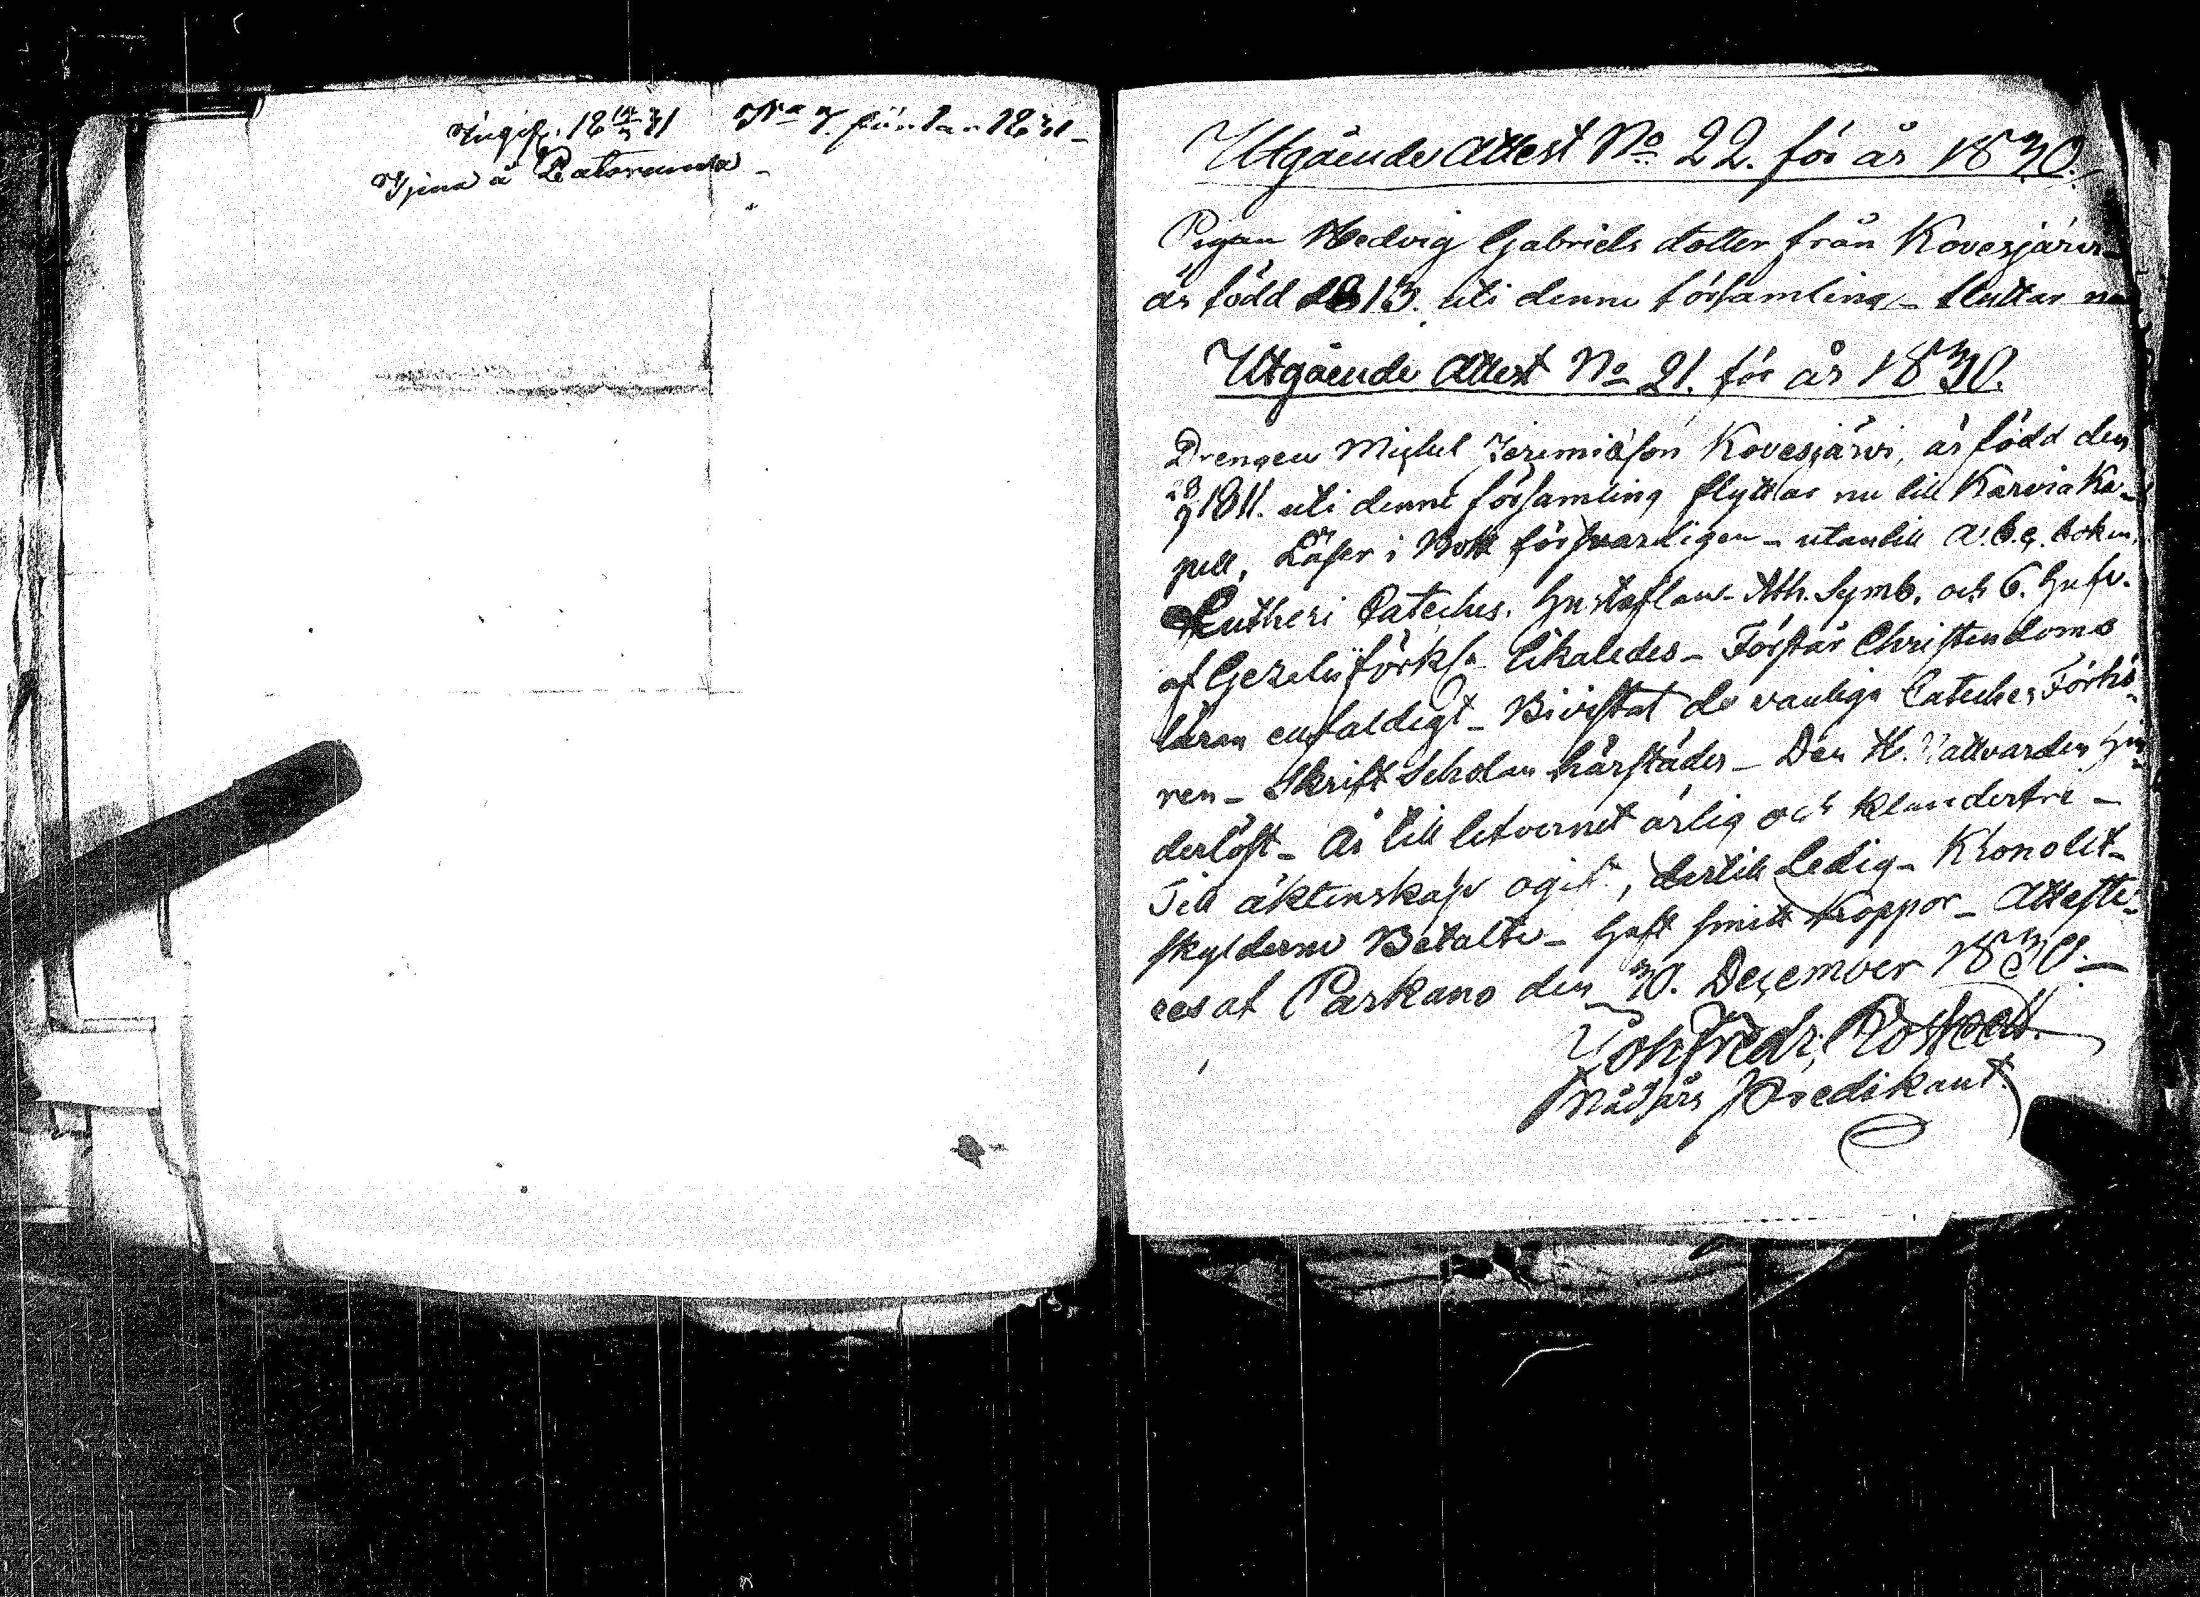 Ingift. 18 14/3 31 No 7. för 1831 -
Tjena å Ratovuma -
Utgående Attest No 22. för år 1830.
Pigan Hedvig Gabriels dotter från Kovesjärvi
är född 1813. uti denne församling - fluttar nu
Utgående Attest No 21. för år 1830.
Drengen Michel Jeremiæson Kovesjärvi, är född den
28/9 1811. uti denne församling flyttar nu till Karvia Ka-
pell, Läser i Bok försvarligen - utantill A.b.c. boken,
Lutheri Cateches. Hustaflan - Ath. Symb. och 6. Hufv.
af Gezelii förkl. likaledes - Förstår Christendoms
läran enfaldigt - Bivistat de vanliga Cateches Förhö-
ren - Skrift Scholan härstädes - Den H. Nattvarden hin-
derlöst - Är till lefvernet ärlig och klanderfri -
Till äktenskap ogift, dertill Ledig - Kronolit-
skylderne Betalte - Haft smitt Koppor - Atteste-
res af Parkano den 30. December 1830. -
Joh Fredr: Roskell.
Nådårs Predikant.